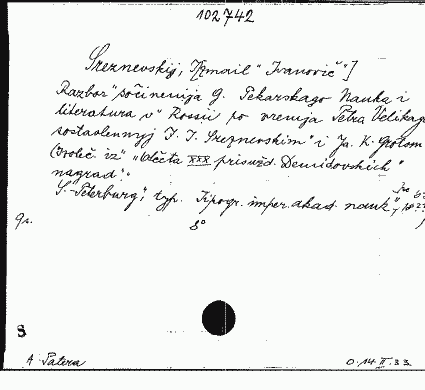 102742
Sreznevskij, I[zmail" Ivanovič"]
Razbor" sočinenija g. Pekarskago Nauka i
literatura v" Rossii po vremja Petra Velikago
sostavlennyj I. I. Sreznevskim" i Ja. K. Grotom
(Izvleč. iz" "Otčeta XXX prisužd. Demidovskich"
nagrad".
S.-Peterburg", typ. Tipogr. imper. akad. nauk",
9r. 8°
S
A. Patera 0.14.II.33.